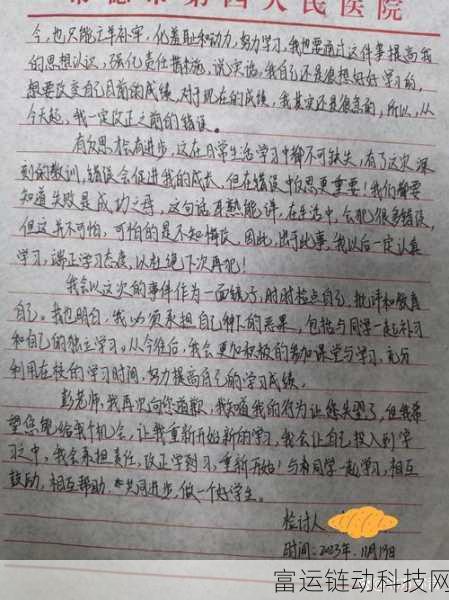 常德市第四人民医院
今,也只能亡羊补牢,化羞耻和动力,努力学习,我也要通过这件事提高我
的思想认识,强化责任措施,说实话,我自己还是很想好好学习的,
想要改变自己目前的成绩,对于现在的成绩,我其实还是很急的,所以,从
今天起,我一定改正之前的错误。
有反思才会有进步,这在日常生活学习中都不可缺失,有了这次深
刻的教训,错误会促进我的成长,但在错误中反思更重要!我们都要
知道失败是成功之母,这句话耳熟能详,在生活中,会犯很多错误,
但这并不可怕,可怕的是不知悔改。因此,出于此事,我以后一定认真
学习,端正学习态度,以杜绝下次再犯!
我会以这次的事件作为一面镜子,时时检点自己,批评和教育
自己。我也明白,我必须承担自己种下的恶果,包括与同学一起补习
和自己的独立学习。从今往后,我会更加积极的参加课堂与学习,充分
利用在校的学习时间,努力提高自己的学习成绩。
彭老师,我再次向您道歉,我知道我的行为让您失望了,但我希
望您能给我个机会,让我重新开始新的学习,我会让自己投入到学
习之中,我会承担责任,改正学到习,重新开始!与有同学一起学习,相互
鼓励,相互帮助,共同进步,做一个好学生。
检讨人:
时间:2023年.11月19日
富运链动科技网